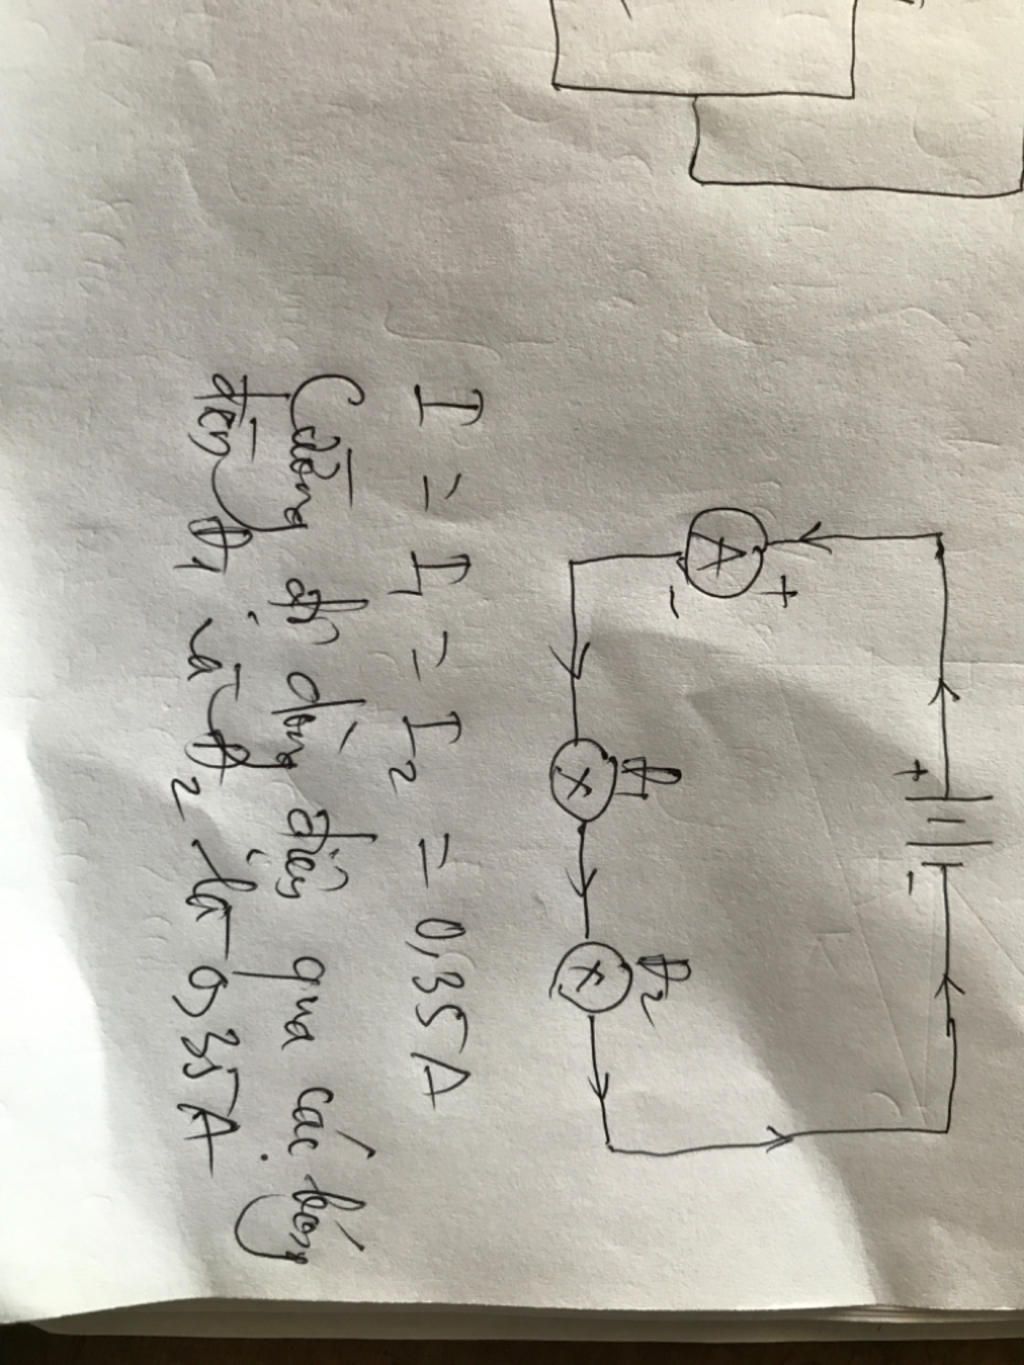 + -
A + -
Đ1 Đ2
X X
I = I1 = I2 = 0,35A
Cường độ dòng điện qua các bóng
đèn Đ1 và Đ2 là 0,35A.